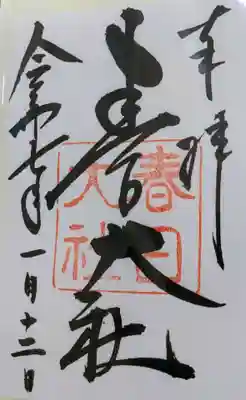 奉拝
春日大社
春日大社
令和七年
一月十二日